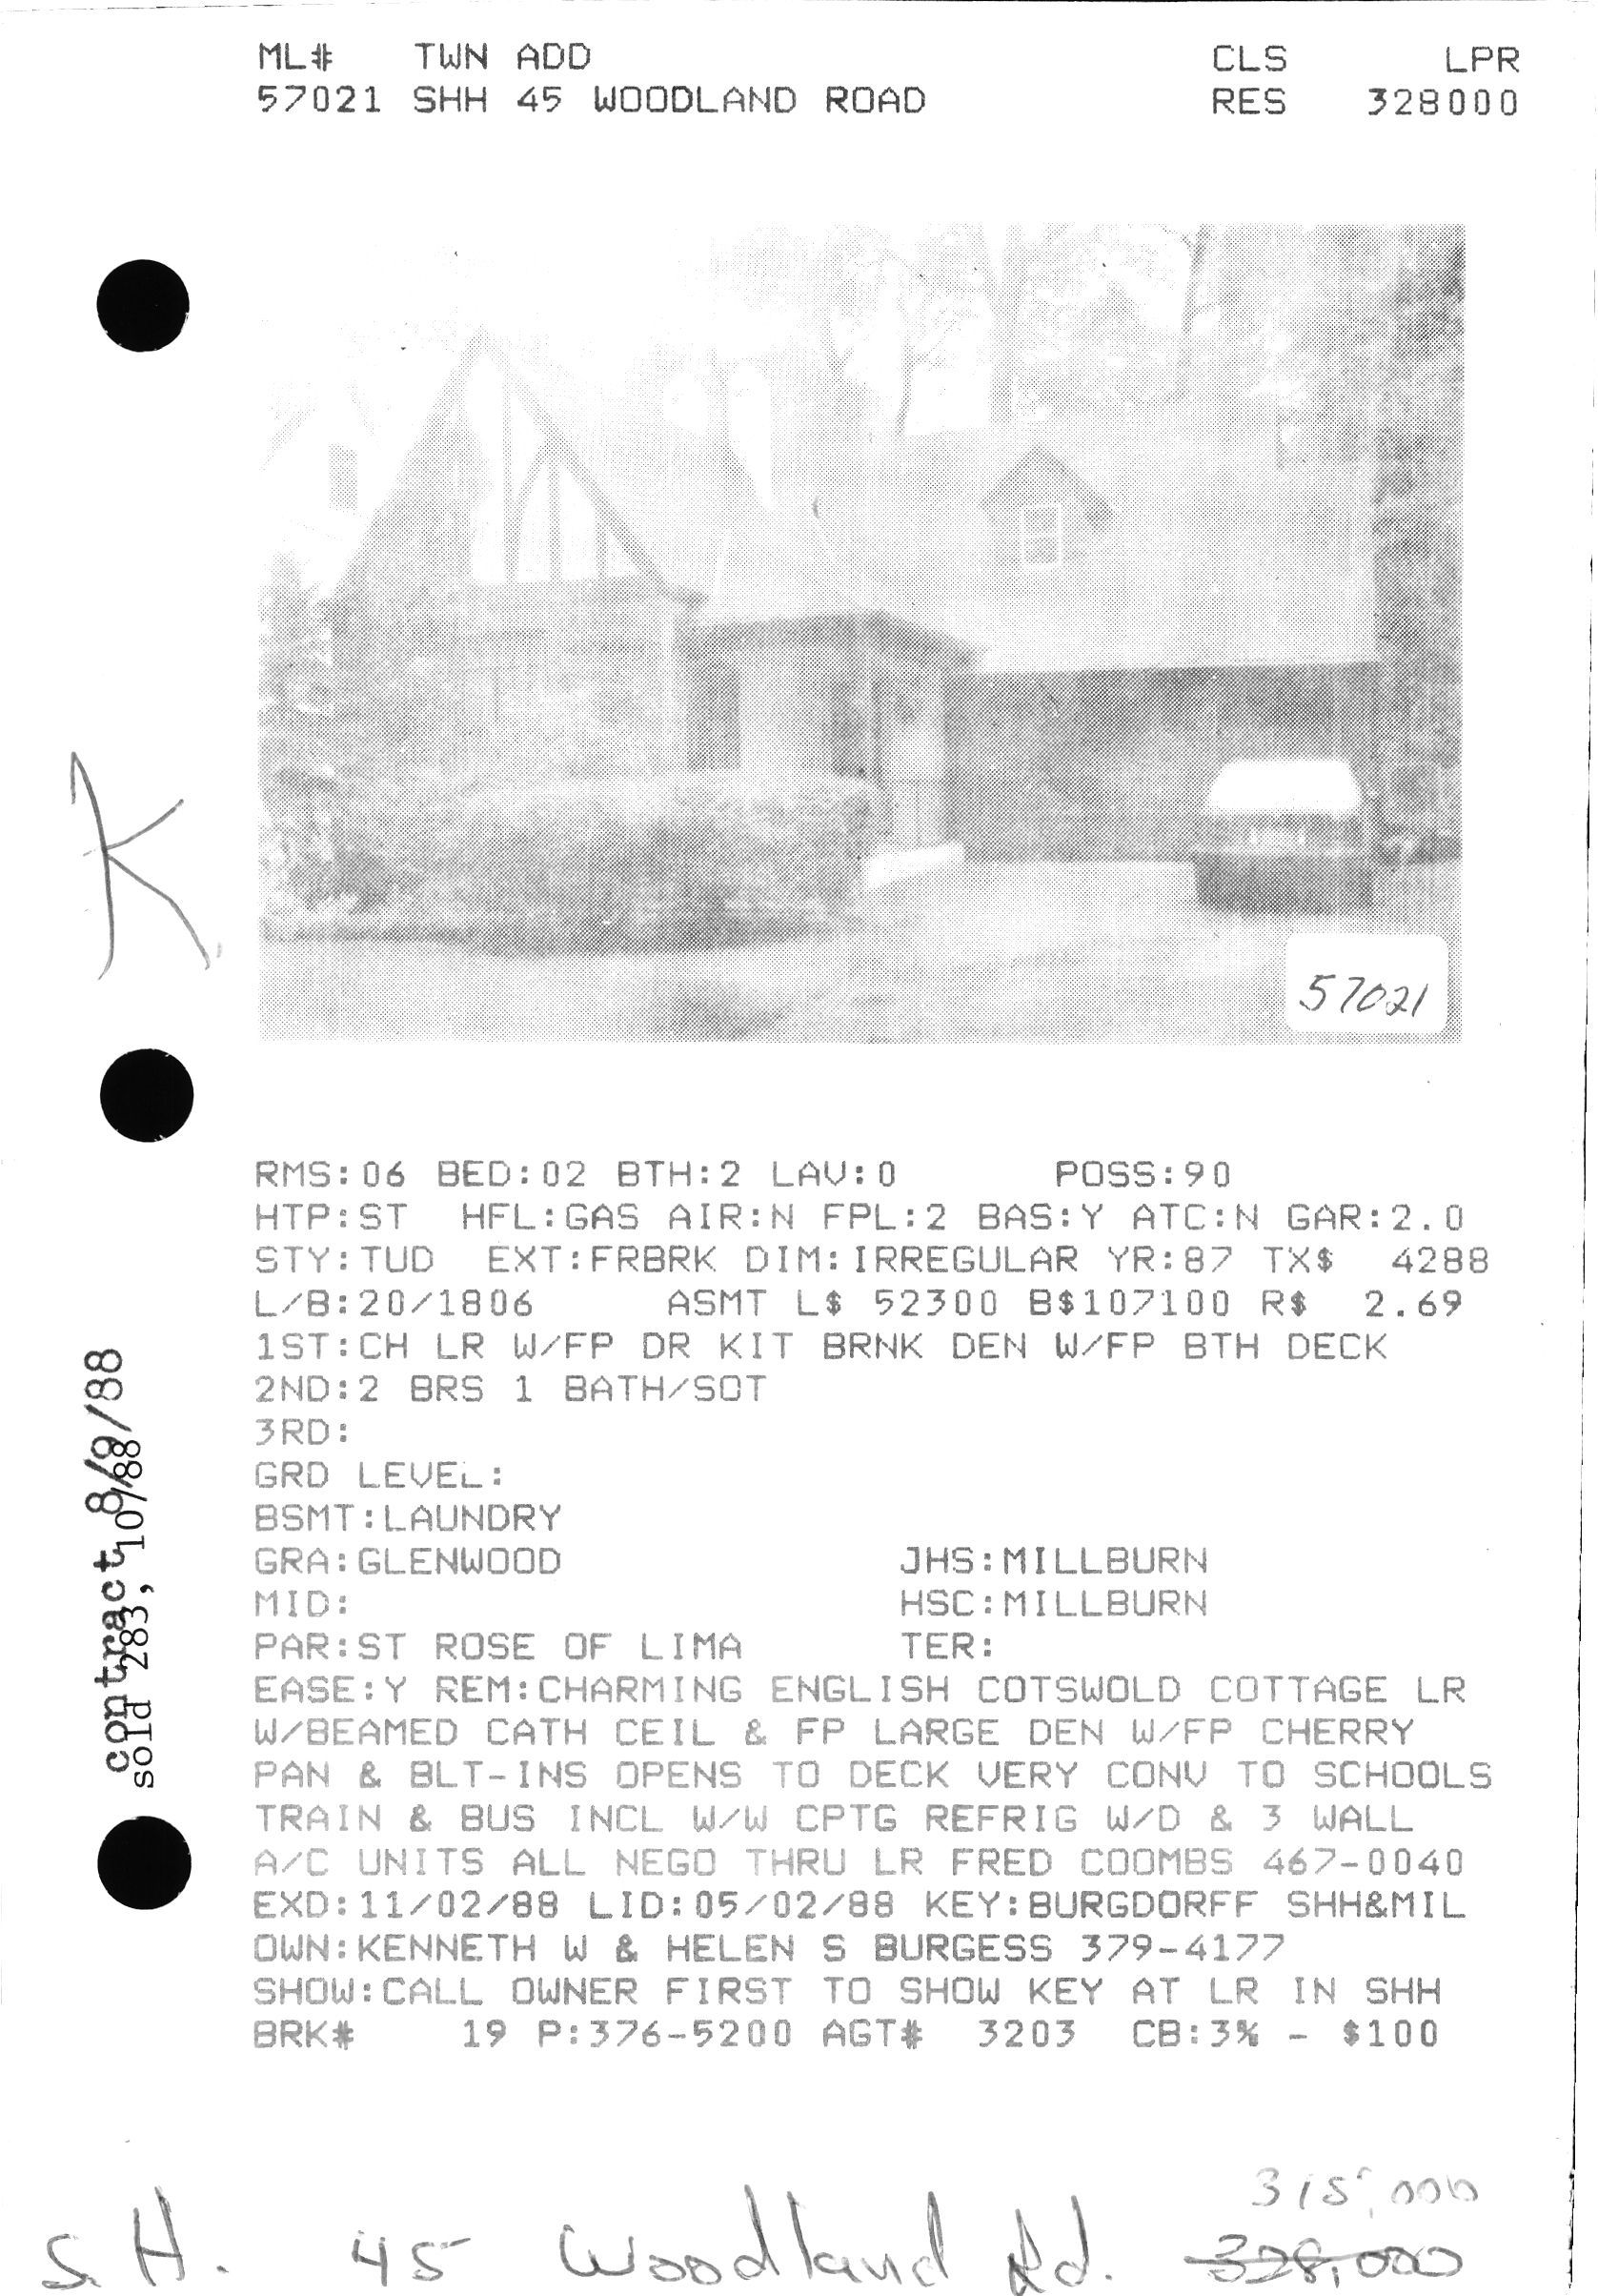 ML# TWN ADD CLS LPR
57021 SHH 45 WOODLAND ROAD RES 328000
57021
K
RMS:06 BED:02 BTH:2 LAV:0 POSS:90
HTP:ST HFL:GAS AIR:N FPL:2 BAS:Y ATC:N GAR:2.0
STY:TUD EXT:FRBRK DIM:IRREGULAR YR:87 TX$ 4288
L/B:20/1806 ASMT L$ 52300 B$107100 R$ 2.69
1ST:CH LR W/FP DR KIT BRNK DEN W/FP BTH DECK
2ND:2 BRS 1 BATH/SOT
3RD:
GRD LEVEL:
BSMT:LAUNDRY
GRA:GLENWOOD JHS:MILLBURN
MID: HSC:MILLBURN
PAR:ST ROSE OF LIMA TER:
EASE:Y REM:CHARMING ENGLISH COTSWOLD COTTAGE LR
W/BEAMED CATH CEIL & FP LARGE DEN W/FP CHERRY
PAN & BLT-INS OPENS TO DECK VERY CONV TO SCHOOLS
TRAIN & BUS INCL W/W CPTG REFRIG W/D & 3 WALL
A/C UNITS ALL NEGO THRU LR FRED COOMBS 467-0040
EXD:11/02/88 LID:05/02/88 KEY:BURGDORFF SHH&MIL
OWN:KENNETH W & HELEN S BURGESS 379-4177
SHOW:CALL OWNER FIRST TO SHOW KEY AT LR IN SHH
BRK# 19 P:376-5200 AGT# 3203 CB:3% - $100
contract 8/9/88
sold 283, 10/88
315,000
S.H. 45 Woodland Rd. 328,000